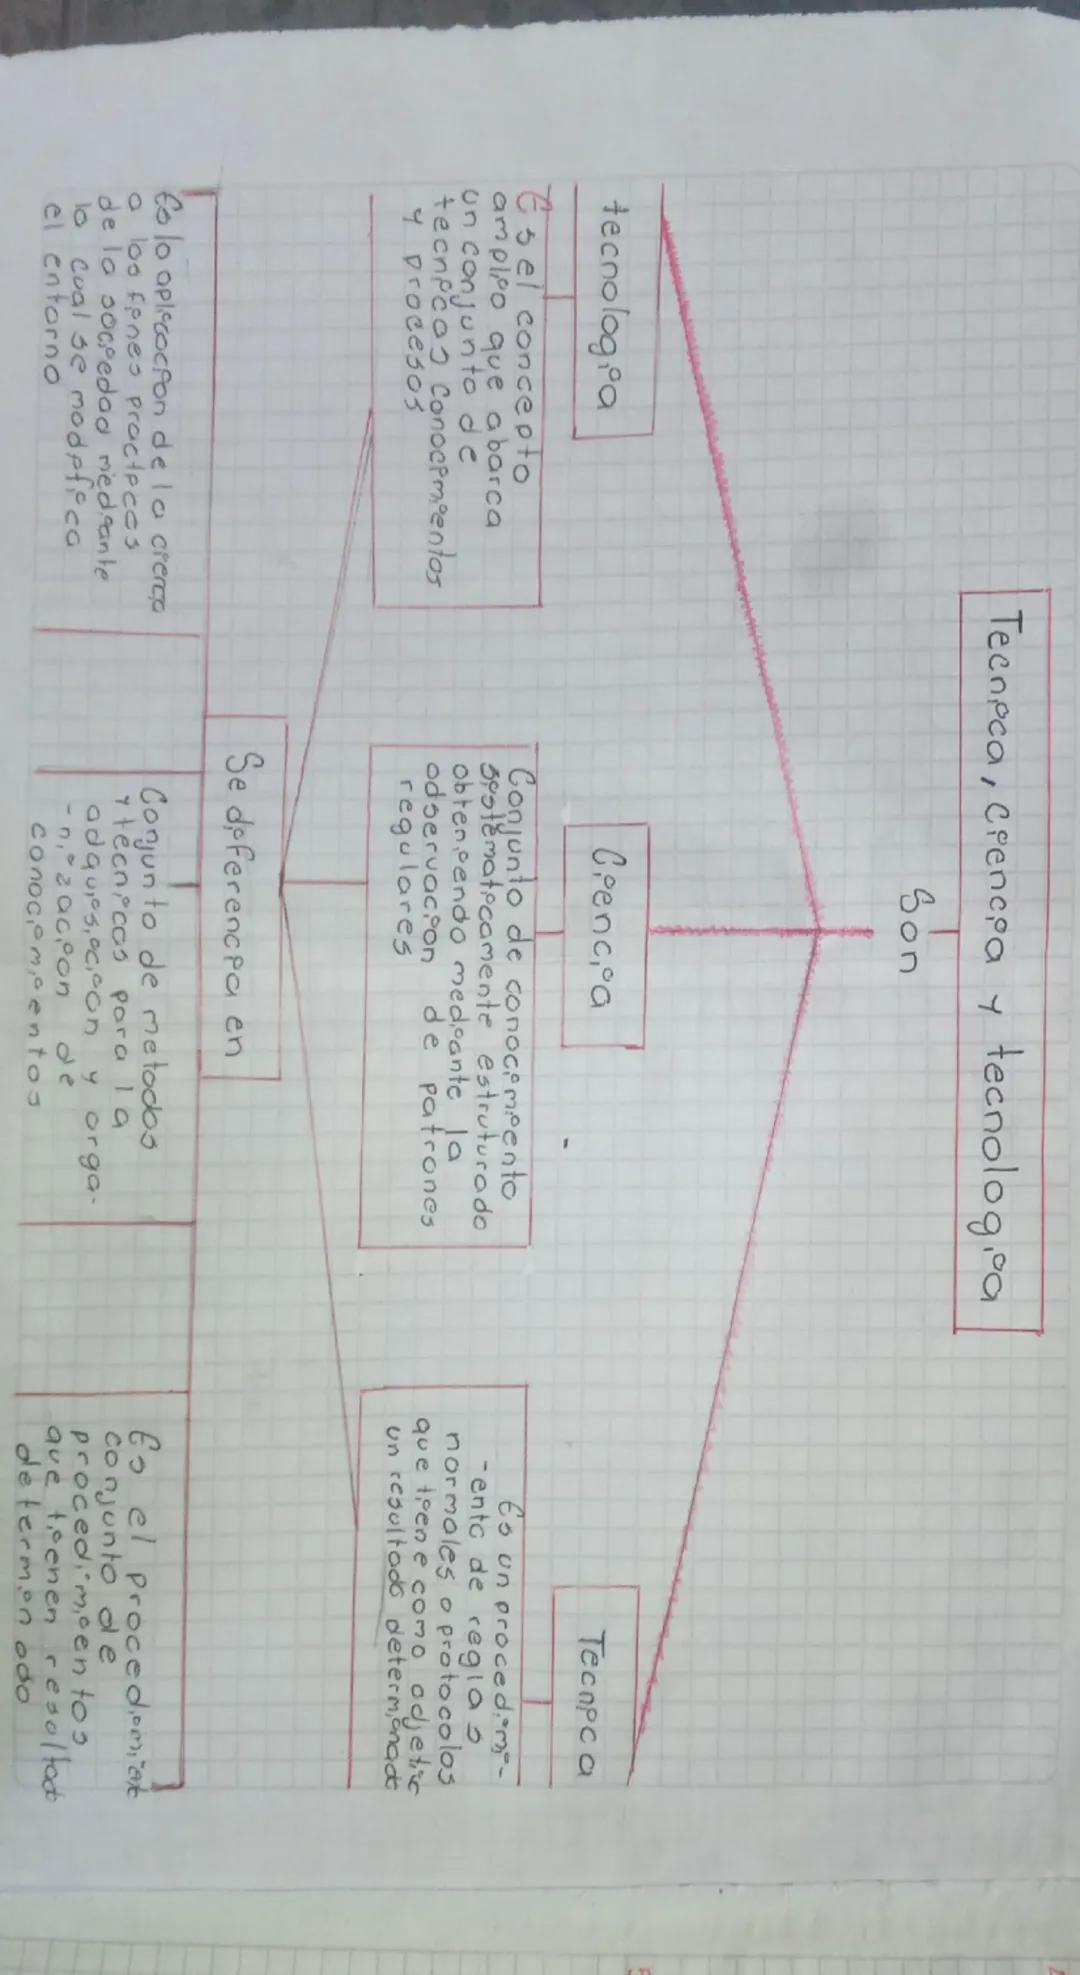 Tecnica, Ciencia y tecnologia
Son
tecnologia
Ciencia
Tecnica
Es el concepto
amplio que abarca
un conjunto de
tecnicas conocimientos
y procesos
Conjunto de conocimiento
sistematicamente estruturado
obteniendo mediante la
odservacion de patrones
regulares
Es un procedimi-
-ento de reglas
normales o protocolos
que tiene como adjetivo
un resultado determinado
Se diferencia en
Es la aplicacion de la ciencia
a los fines practicos
de la sociedad mediante
lo cual se modifica
el entorno
Conjunto de metodos
y tecnicas para la
adquisicion y orga-
-nizacion de
conocimientos
Es el procedimiento
conjunto de
procedimientos
que tienen resultado
determinado